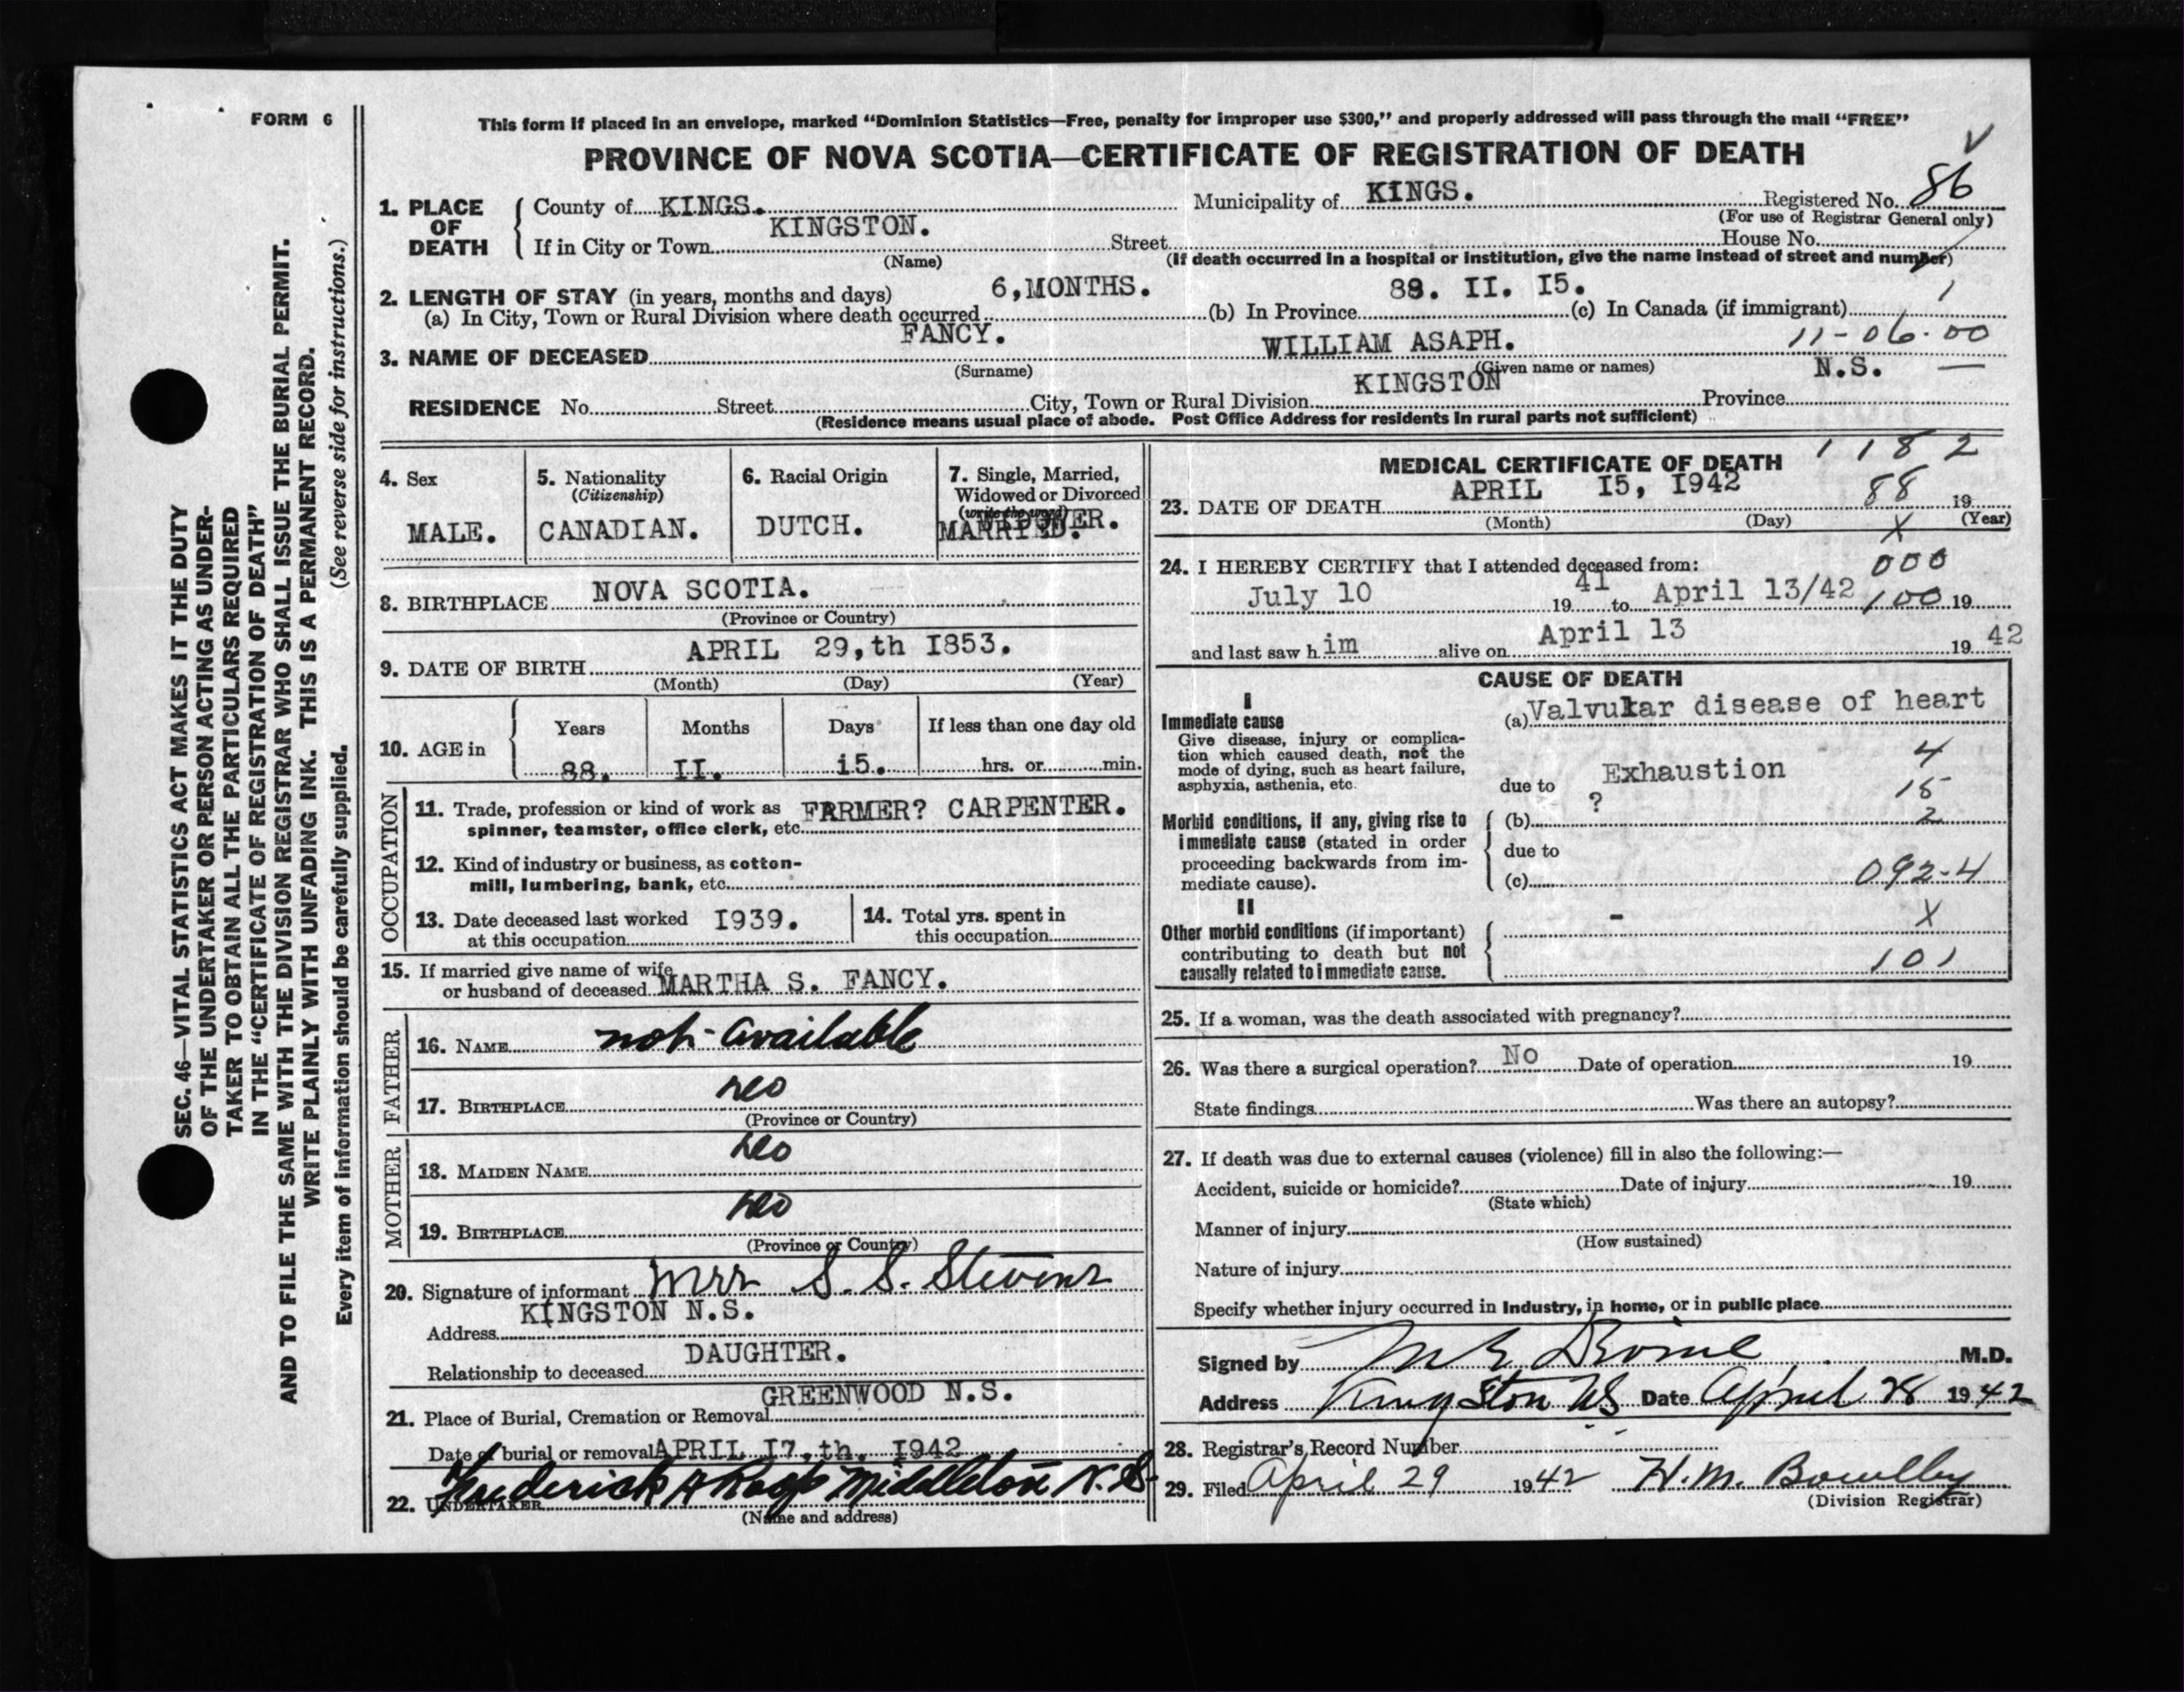 FORM 6
This form if placed in an envelope, marked “Dominion Statistics—Free, penalty for improper use $300,” and properly addressed will pass through the mail “FREE”
PROVINCE OF NOVA SCOTIA—CERTIFICATE OF REGISTRATION OF DEATH
1. PLACE OF DEATH
County of KINGS. Municipality of KINGS. Registered No. 86
(For use of Registrar General only)
If in City or Town KINGSTON. Street House No.
(Name) (If death occurred in a hospital or institution, give the name instead of street and number)
2. LENGTH OF STAY (in years, months and days)
(a) In City, Town or Rural Division where death occurred 6,MONTHS. (b) In Province 88. II. I5. (c) In Canada (if immigrant) 1
3. NAME OF DECEASED FANCY. WILLIAM ASAPH. 11-06-00
(Surname) (Given name or names)
RESIDENCE No. Street City, Town or Rural Division KINGSTON Province N.S. —
(Residence means usual place of abode. Post Office Address for residents in rural parts not sufficient)
4. Sex
MALE.
5. Nationality
(Citizenship)
CANADIAN.
6. Racial Origin
DUTCH.
7. Single, Married,
Widowed or Divorced
(write the word)
MARRIED.
8. BIRTHPLACE NOVA SCOTIA.
(Province or Country)
9. DATE OF BIRTH APRIL 29,th I853.
(Month) (Day) (Year)
10. AGE in
Years Months Days If less than one day old
88. II. i5. hrs. or min.
OCCUPATION
11. Trade, profession or kind of work as
spinner, teamster, office clerk, etc. FARMER? CARPENTER.
12. Kind of industry or business, as cotton-
mill, lumbering, bank, etc.
13. Date deceased last worked
at this occupation I939.
14. Total yrs. spent in
this occupation
15. If married give name of wife
or husband of deceased MARTHA S. FANCY.
FATHER
16. NAME not available
17. BIRTHPLACE
(Province or Country)
MOTHER
18. MAIDEN NAME
19. BIRTHPLACE
(Province or Country)
20. Signature of informant Mrs S. S. Stevens
Address KINGSTON N.S.
Relationship to deceased DAUGHTER.
21. Place of Burial, Cremation or Removal GREENWOOD N.S.
Date of burial or removal APRIL I7,th. I942
22. UNDERTAKER Frederick A Roop Middleton N.S.
(Name and address)
MEDICAL CERTIFICATE OF DEATH 1182
23. DATE OF DEATH APRIL I5, I942 88 19
(Month) (Day) (Year)
X
24. I HEREBY CERTIFY that I attended deceased from: 000
July 10 19 41 to April 13/42 100 19
and last saw h im alive on April 13 19 42
CAUSE OF DEATH
I
Immediate cause
Give disease, injury or complica-
tion which caused death, not the
mode of dying, such as heart failure,
asphyxia, asthenia, etc.
(a) Valvular disease of heart
4
due to Exhaustion
15
?
Morbid conditions, if any, giving rise to
immediate cause (stated in order
proceeding backwards from im-
mediate cause).
(b) 2
due to
(c) 092-4
II
Other morbid conditions (if important)
contributing to death but not
causally related to immediate cause.
- X
101
25. If a woman, was the death associated with pregnancy?
26. Was there a surgical operation? No Date of operation 19
State findings Was there an autopsy?
27. If death was due to external causes (violence) fill in also the following:—
Accident, suicide or homicide? Date of injury 19
(State which)
Manner of injury
(How sustained)
Nature of injury
Specify whether injury occurred in industry, in home, or in public place
Signed by M.D.
Address Kingston NS Date April 28 1942
28. Registrar's Record Number
29. Filed April 29 1942 H. M. Bowlby
(Division Registrar)
SEC. 46—VITAL STATISTICS ACT MAKES IT THE DUTY
OF THE UNDERTAKER OR PERSON ACTING AS UNDER-
TAKER TO OBTAIN ALL THE PARTICULARS REQUIRED
IN THE “CERTIFICATE OF REGISTRATION OF DEATH”
AND TO FILE THE SAME WITH THE DIVISION REGISTRAR WHO SHALL ISSUE THE BURIAL PERMIT.
WRITE PLAINLY WITH UNFADING INK. THIS IS A PERMANENT RECORD.
Every item of information should be carefully supplied. (See reverse side for instructions.)